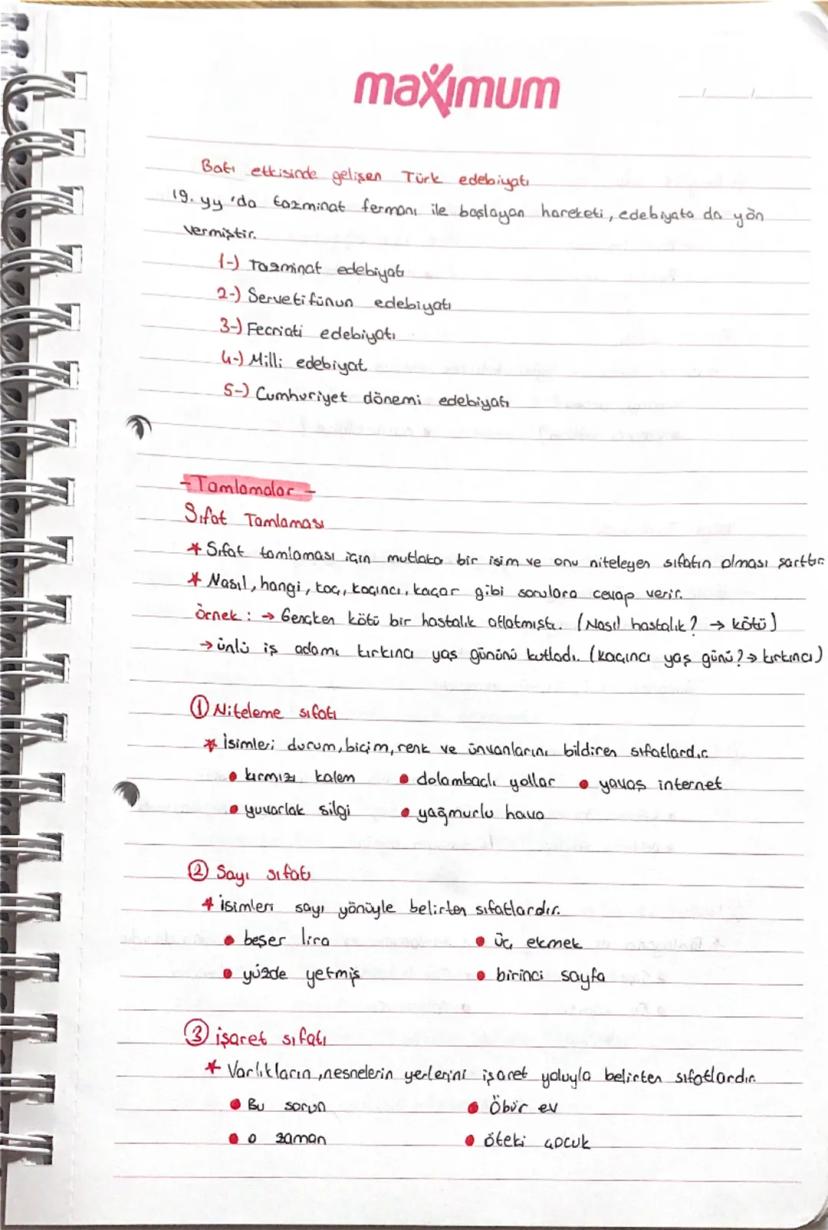 maximum
Batı etkisinde gelişen Türk edebiyatı
19. yy 'da tazminat fermanı ile başlayan hareketi, edebiyata da yön
vermiştir.
1-) Tazminat edebiyatı
2-) Servetifünun edebiyatı
3-) Fecriati edebiyatı
4-) Milli edebiyat
5-) Cumhuriyet dönemi edebiyatı
- Tamlamalar -
Sıfat Tamlaması
* Sıfat tamlaması için mutlaka bir isim ve onu niteleyen sıfatın olması şarttır.
* Nasıl, hangi, kaç, kaçıncı, kaçar gibi sorulara cevap verir.
örnek : → Gençken kötü bir hastalık atlatmıştı. (Nasıl hastalık? → kötü)
→ ünlü iş adamı kırkıncı yaş gününü kutladı. (kaçıncı yaş günü? → kırkıncı)
① Niteleme sıfatı
* İsimleri durum, biçim, renk ve ünvanlarını bildiren sıfatlardır.
• kırmızı kalem • dolambaçlı yollar • yavaş internet
• yuvarlak silgi • yağmurlu hava
② Sayı sıfatı
* isimleri sayı yönüyle belirten sıfatlardır.
• beşer lira • üç ekmek
• yüzde yetmiş • birinci sayfa
③ işaret sıfatı
* Varlıkların, nesnelerin yerlerini işaret yoluyla belirten sıfatlardır.
• Bu sorun • Öbür ev
• o zaman • öteki çocuk